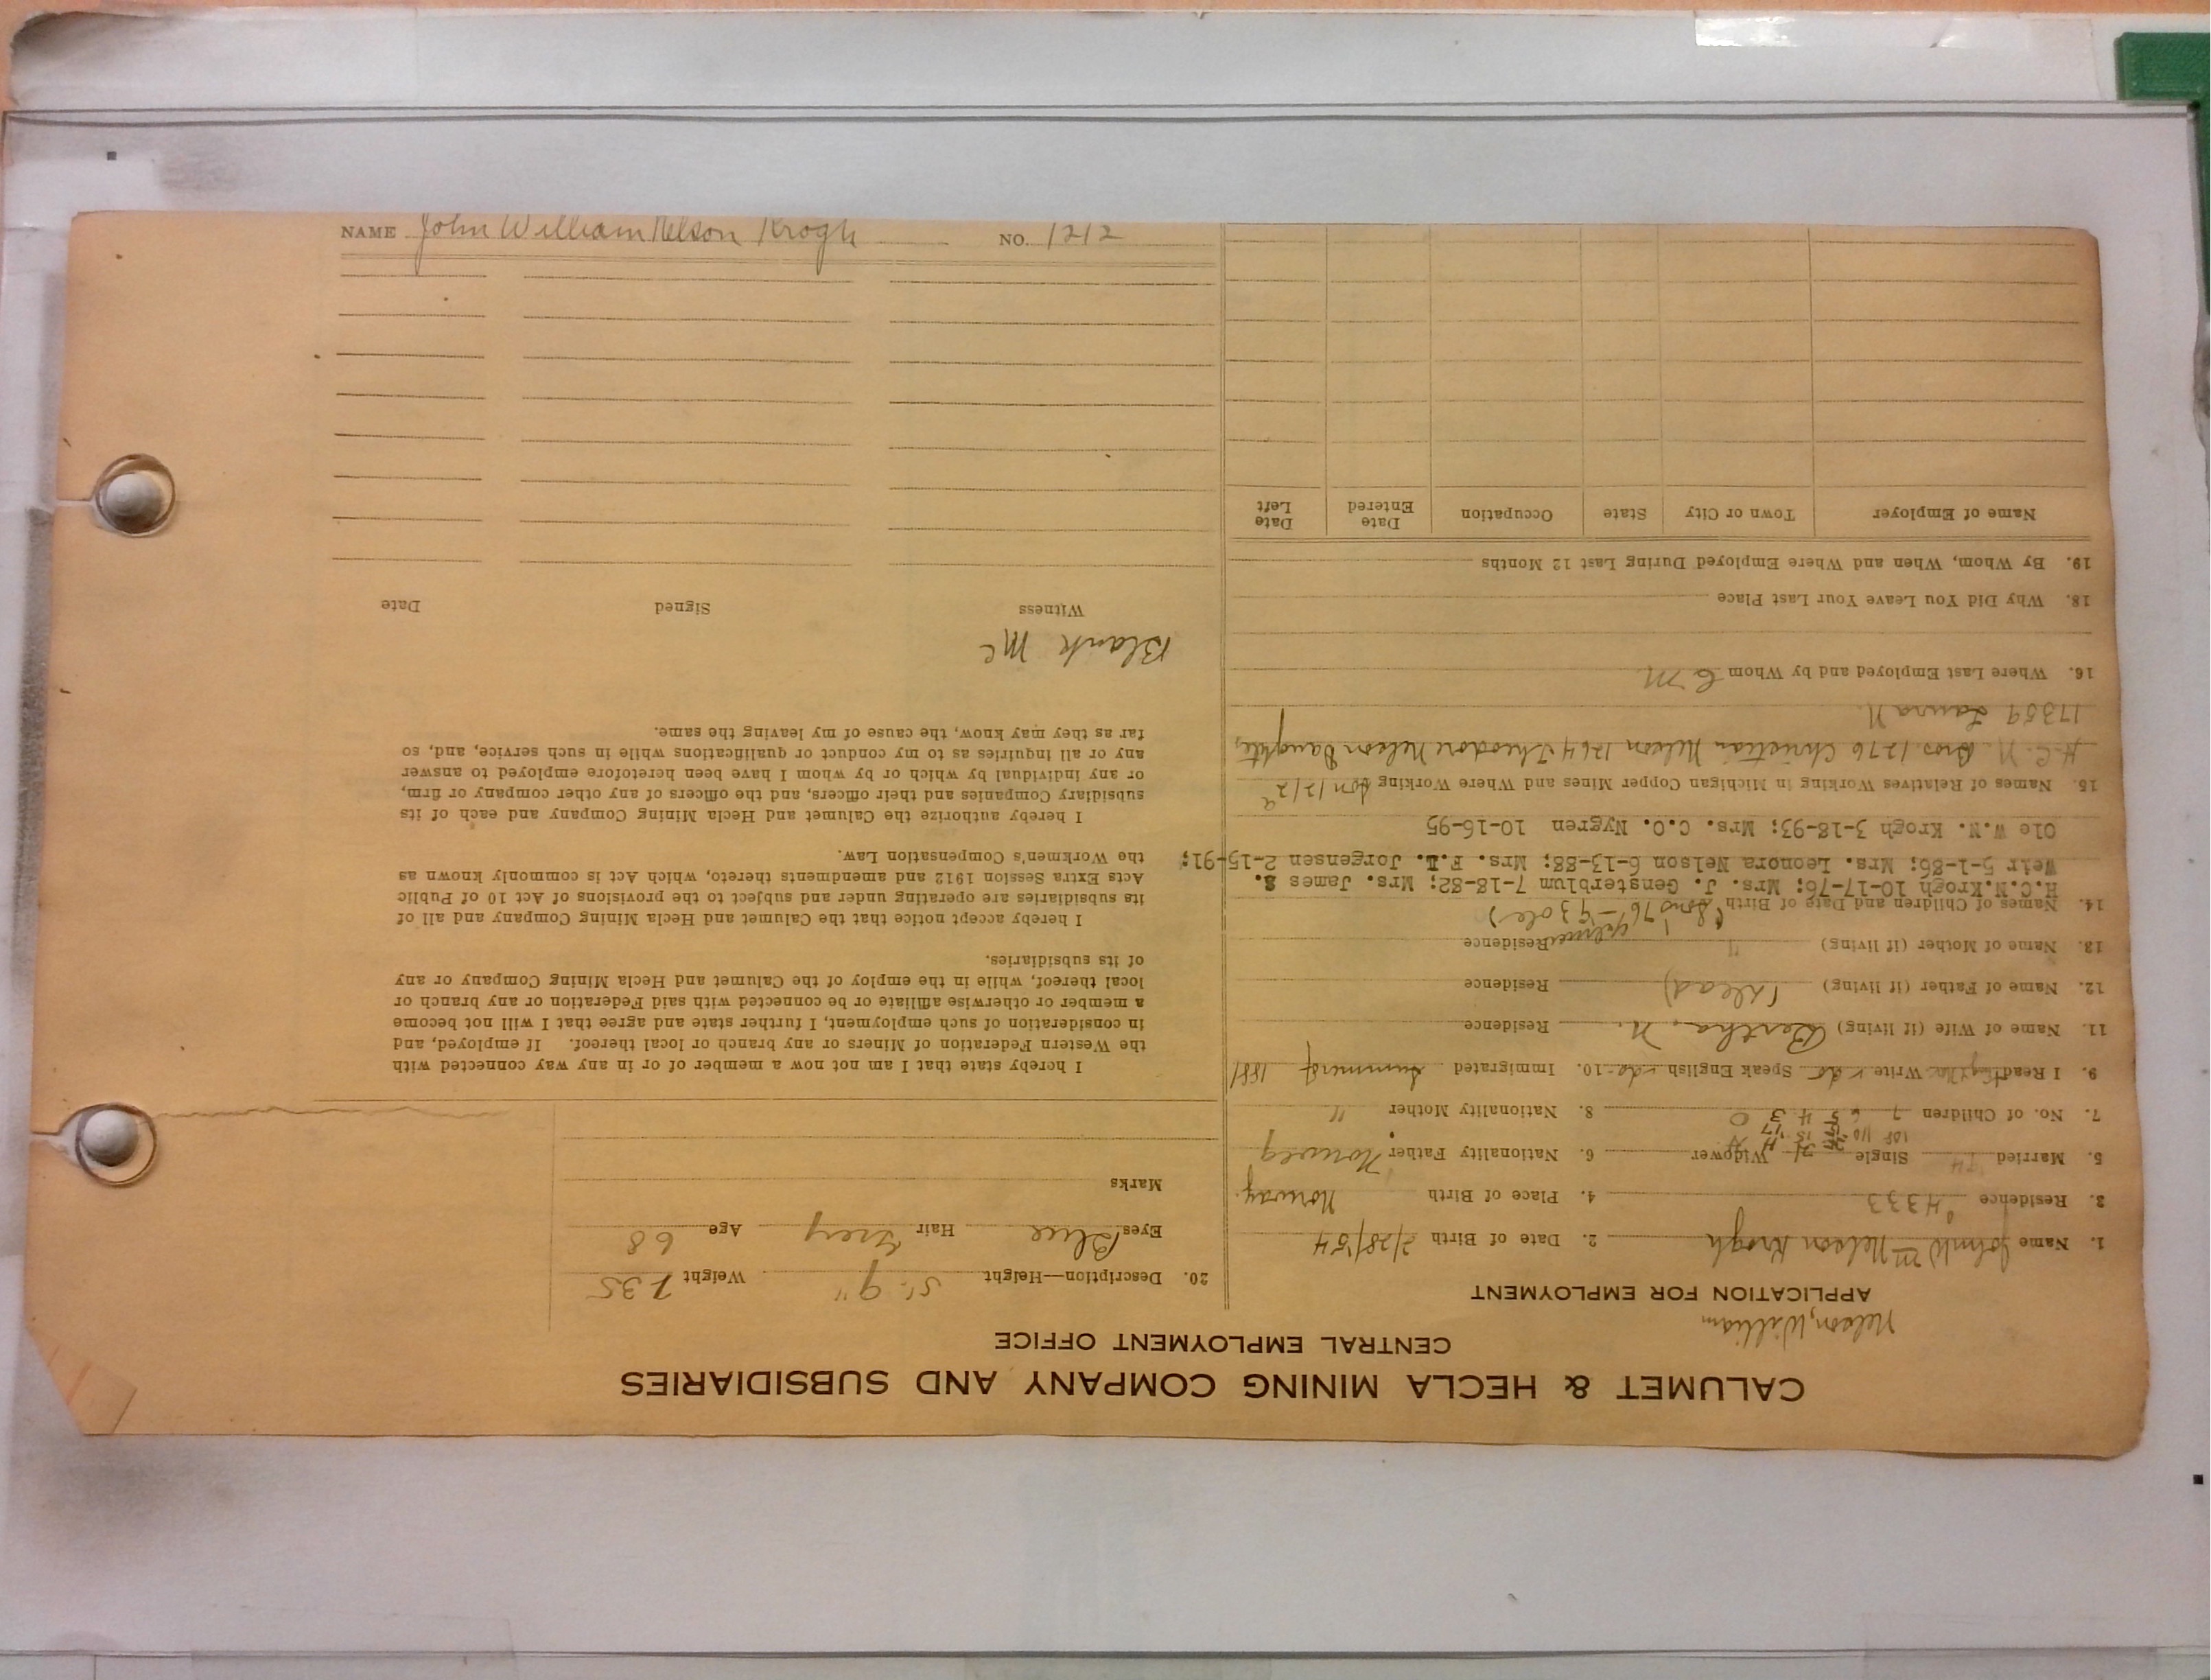 NAME John William Nelson Krogh NO. 1212
CALUMET & HECLA MINING COMPANY AND SUBSIDIARIES
CENTRAL EMPLOYMENT OFFICE
Nelson, William
APPLICATION FOR EMPLOYMENT
1. Name John Wm Nelson Krogh 2. Date of Birth 2/28/54
3. Residence 4333 4. Place of Birth Norway
5. Married Single Widower 6. Nationality Father Norweg
7. No. of Children 7 6 5 4 3 0 8. Nationality Mother "
9. I Read Write do Speak English do 10. Immigrated Summer of 1881
11. Name of Wife (if living) Bertha. N. Residence
12. Name of Father (if living) (dead) Residence
13. Name of Mother (if living) " Residence
14. Names of Children and Date of Birth
H.C.N.Krogh 10-17-76; Mrs. J. Gensterblum 7-18-82; Mrs. James S.
Weir 5-1-86; Mrs. Leonora Nelson 6-13-88; Mrs. F.L. Jorgensen 2-15-91;
Ole W.N. Krogh 3-18-93; Mrs. C.O. Nygren 10-16-95
15. Names of Relatives Working in Michigan Copper Mines and Where Working Son 1212a
H.C.N. Bros. 1276 Christian Nelson 1264 Theodore Nelson Daughter,
17359 Laura N.
16. Where Last Employed and by Whom C M
18. Why Did You Leave Your Last Place
19. By Whom, When and Where Employed During Last 12 Months
Name of Employer Town or City State Occupation Date Entered Date Left
20. Description—Height 5'. 9" Weight 235
Eyes Blue Hair Grey Age 68
Marks
I hereby state that I am not now a member of or in any way connected with
the Western Federation of Miners or any branch or local thereof. If employed, and
in consideration of such employment, I further state and agree that I will not become
a member or otherwise affiliate or be connected with said Federation or any branch or
local thereof, while in the employ of the Calumet and Hecla Mining Company or any
of its subsidiaries.
I hereby accept notice that the Calumet and Hecla Mining Company and all of
its subsidiaries are operating under and subject to the provisions of Act 10 of Public
Acts Extra Session 1912 and amendments thereto, which Act is commonly known as
the Workmen's Compensation Law.
I hereby authorize the Calumet and Hecla Mining Company and each of its
subsidiary Companies and their officers, and the officers of any other company or firm,
or any individual by which or by whom I have been heretofore employed to answer
any or all inquiries as to my conduct or qualifications while in such service, and, so
far as they may know, the cause of my leaving the same.
Blank Mc
Witness Signed Date